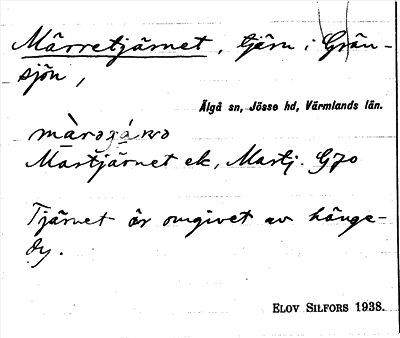 Märretjärnet, tjärn i Grän-
sjön,
Älgå sn, Jösse hd, Värmlands län.
Martjärnet ek, Martj. G70
Tjärnet är omgivet av hänge-
dy.
ELOV SILFORS 1938.